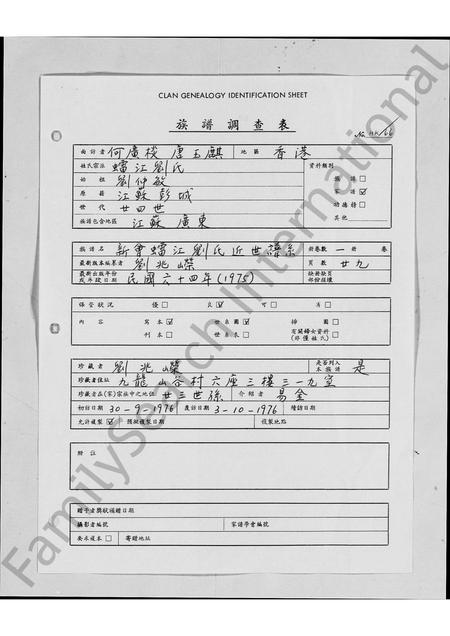 CLAN GENEALOGY IDENTIFICATION SHEET
族譜調查表
No. HK/66
面訪者 何廣棪 唐玉麒 地區 香港
姓氏宗派 蠕江劉氏 資料類別
始祖 劉仲敏 族譜 □
原籍 江蘇彭城 家譜 ☑
世代 廿四世 功德榜 □
族譜包含地區 江蘇 廣東 其他
族譜名 新會蠕江劉氏近世譜系 卷數 一冊 卷
最新版本編纂者 劉兆嶸 頁數 廿九
最新出版年份或年段日期 民國六十四年(1975) 缺卷缺頁部份註釋
保管狀況 優 □ 良 ☑ 可 □ 劣 □
內容 寫本 ☑ 世系圖 ☑ 排圖 □ 有關婦女資料 □
刊本 □ 世系表 □ (非僅姓氏)
珍藏者 劉兆嶸 是否列入本族譜 是
珍藏者住址 九龍山谷村六座三樓三一九室
珍藏者在(家)宗族中之地位 廿三世孫 介紹者 易金
初訪日期 30-9-1976 復訪日期 3-10-1976 續訪日期
允許複製 ☑ 預擬複製日期 複製地點
附註
贈予者獎狀頒贈日期
攝影者編號 家譜學會編號
要求複本 □ 寄贈地址
FamilySearch International